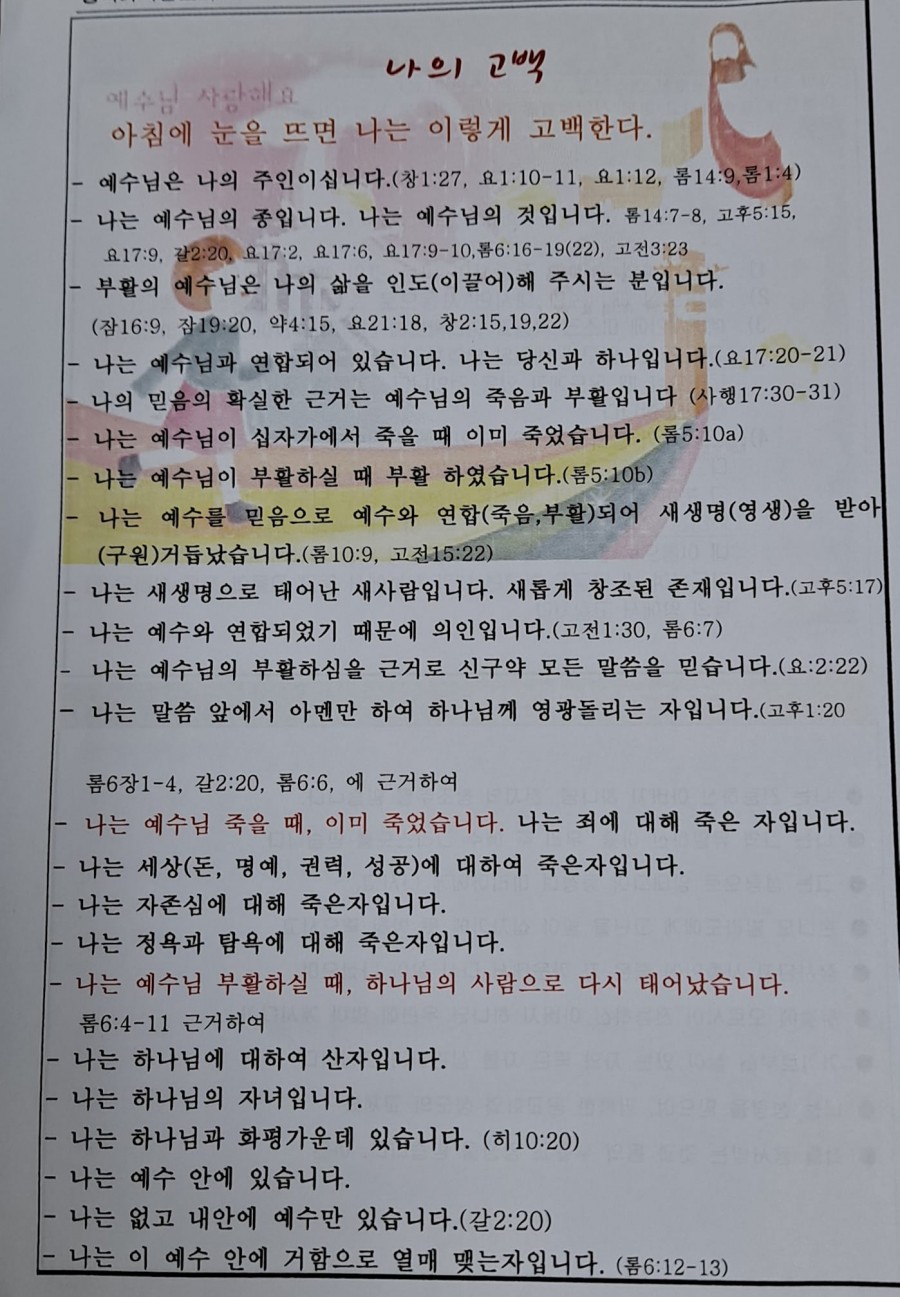 나의 고백
예수님 사랑해요
아침에 눈을 뜨면 나는 이렇게 고백한다.
- 예수님은 나의 주인이십니다.(창1:27, 요1:10-11, 요1:12, 롬14:9,롬1:4)
- 나는 예수님의 종입니다. 나는 예수님의 것입니다. 롬14:7-8, 고후5:15,
요17:9, 갈2:20, 요17:2, 요17:6, 요17:9-10,롬6:16-19(22), 고전3:23
- 부활의 예수님은 나의 삶을 인도(이끌어)해 주시는 분입니다.
(잠16:9, 잠19:20, 약4:15, 요21:18, 창2:15,19,22)
- 나는 예수님과 연합되어 있습니다. 나는 당신과 하나입니다.(요17:20-21)
- 나의 믿음의 확실한 근거는 예수님의 죽음과 부활입니다 (사행17:30-31)
- 나는 예수님이 십자가에서 죽을 때 이미 죽었습니다. (롬5:10a)
- 나는 예수님이 부활하실 때 부활 하였습니다.(롬5:10b)
- 나는 예수를 믿음으로 예수와 연합(죽음,부활)되어 새생명(영생)을 받아
(구원)거듭났습니다.(롬10:9, 고전15:22)
- 나는 새생명으로 태어난 새사람입니다. 새롭게 창조된 존재입니다.(고후5:17)
- 나는 예수와 연합되었기 때문에 의인입니다.(고전1:30, 롬6:7)
- 나는 예수님의 부활하심을 근거로 신구약 모든 말씀을 믿습니다.(요:2:22)
- 나는 말씀 앞에서 아멘만 하여 하나님께 영광돌리는 자입니다.(고후1:20
롬6장1-4, 갈2:20, 롬6:6, 에 근거하여
- 나는 예수님 죽을 때, 이미 죽었습니다. 나는 죄에 대해 죽은 자입니다.
- 나는 세상(돈, 명예, 권력, 성공)에 대하여 죽은자입니다.
- 나는 자존심에 대해 죽은자입니다.
- 나는 정욕과 탐욕에 대해 죽은자입니다.
- 나는 예수님 부활하실 때, 하나님의 사람으로 다시 태어났습니다.
롬6:4-11 근거하여
- 나는 하나님에 대하여 산자입니다.
- 나는 하나님의 자녀입니다.
- 나는 하나님과 화평가운데 있습니다. (히10:20)
- 나는 예수 안에 있습니다.
- 나는 없고 내안에 예수만 있습니다.(갈2:20)
- 나는 이 예수 안에 거함으로 열매 맺는자입니다. (롬6:12-13)